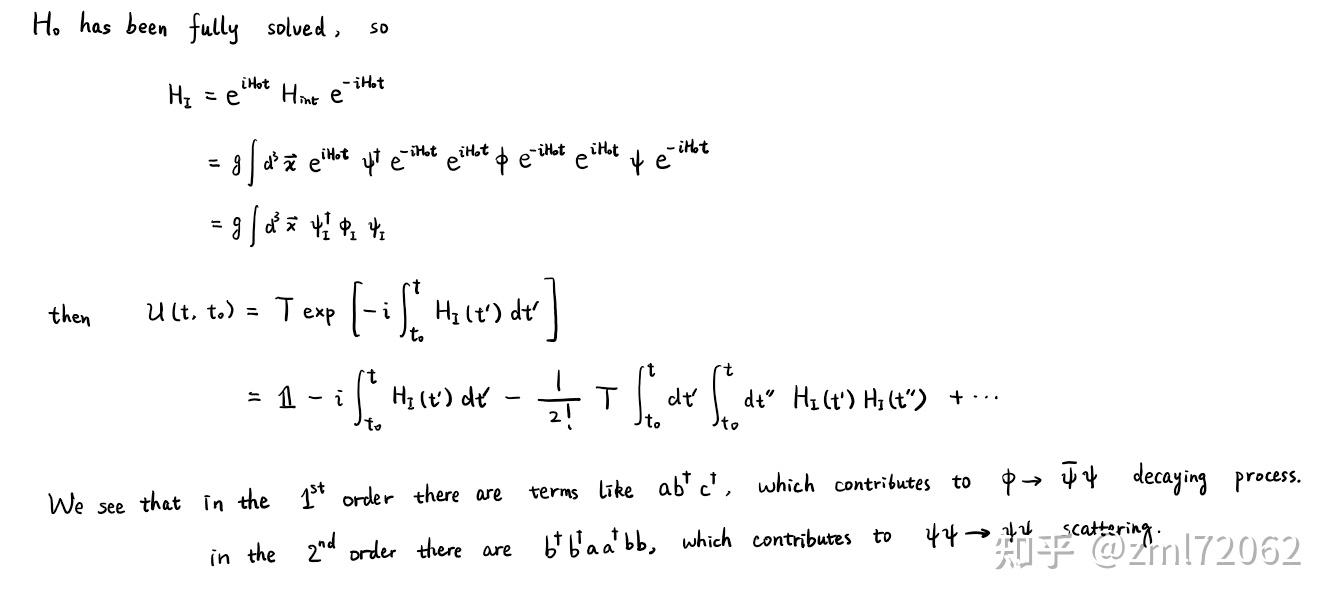 H₀ has been fully solved, so
H_I = e^{iH₀t} H_int e^{-iH₀t}
= g∫d³x⃗ e^{iH₀t} ψ† e^{-iH₀t} e^{iH₀t} ϕ e^{-iH₀t} e^{iH₀t} ψ e^{-iH₀t}
= g∫d³x⃗ ψ_I† ϕ_I ψ_I
then U(t, t₀) = T exp [-i∫_{t₀}^{t} H_I(t′) dt′]
= 𝟙 - i∫_{t₀}^{t} H_I(t′) dt′ - 1/2! T ∫_{t₀}^{t} dt′ ∫_{t₀}^{t} dt″ H_I(t′) H_I(t″) + ⋯
We see that in the 1st order there are terms like ab†c†, which contributes to ϕ → ψ̄ψ decaying process.
in the 2nd order there are b†b†aa†bb, which contributes to ψψ → ψψ scattering.
知乎 @zml72062